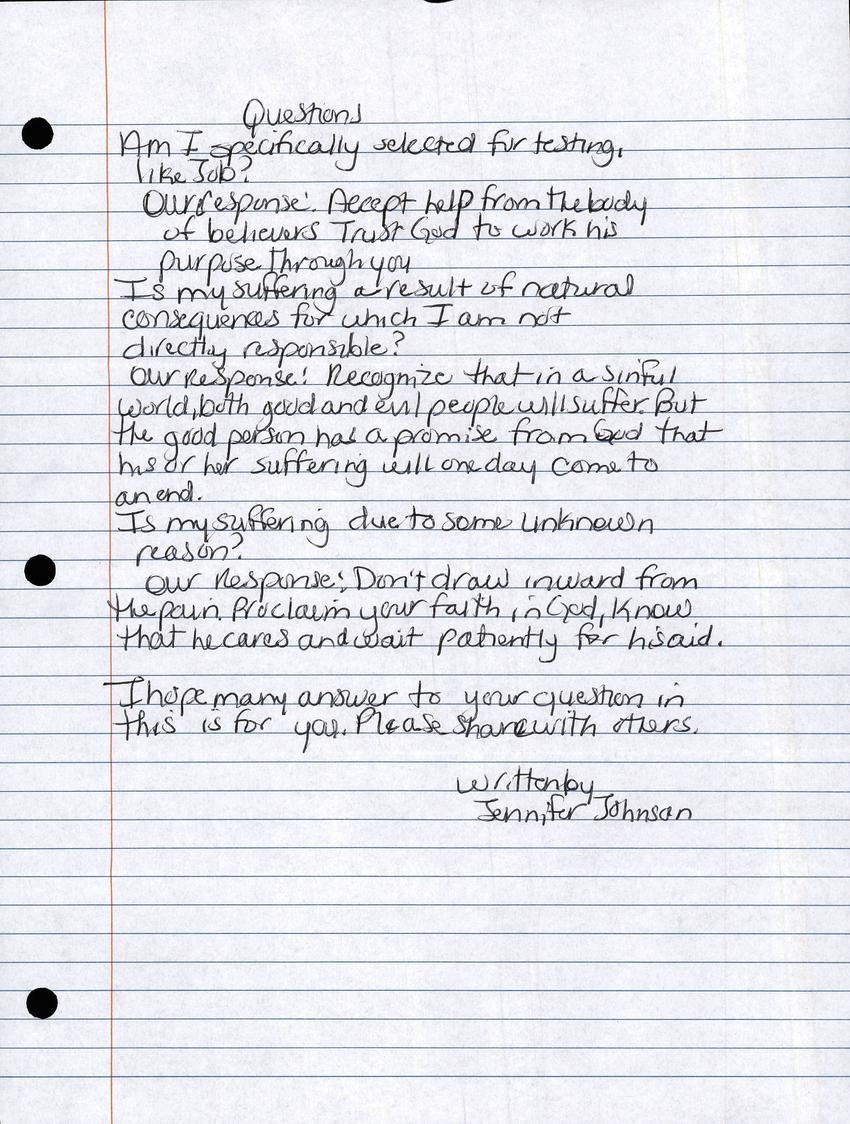 Questions
Am I specifically selected for testing,
like Job?
Our response: Accept help from the body
of believers Trust God to work his
purpose through you
Is my suffering a result of natural
consequences for which I am not
directly responsible?
Our Response: Recognize that in a sinful
world, both good and evil people will suffer. But
the good person has a promise from God that
his or her suffering will one day come to
an end.
Is my suffering due to some unknown
reason?
Our Response: Don't draw inward from
the pain. Proclaim your faith in God, Know
that he cares and wait patiently for his aid.
I hope many answer to your question in
this is for you. Please share with others.
Written by
Jennifer Johnson